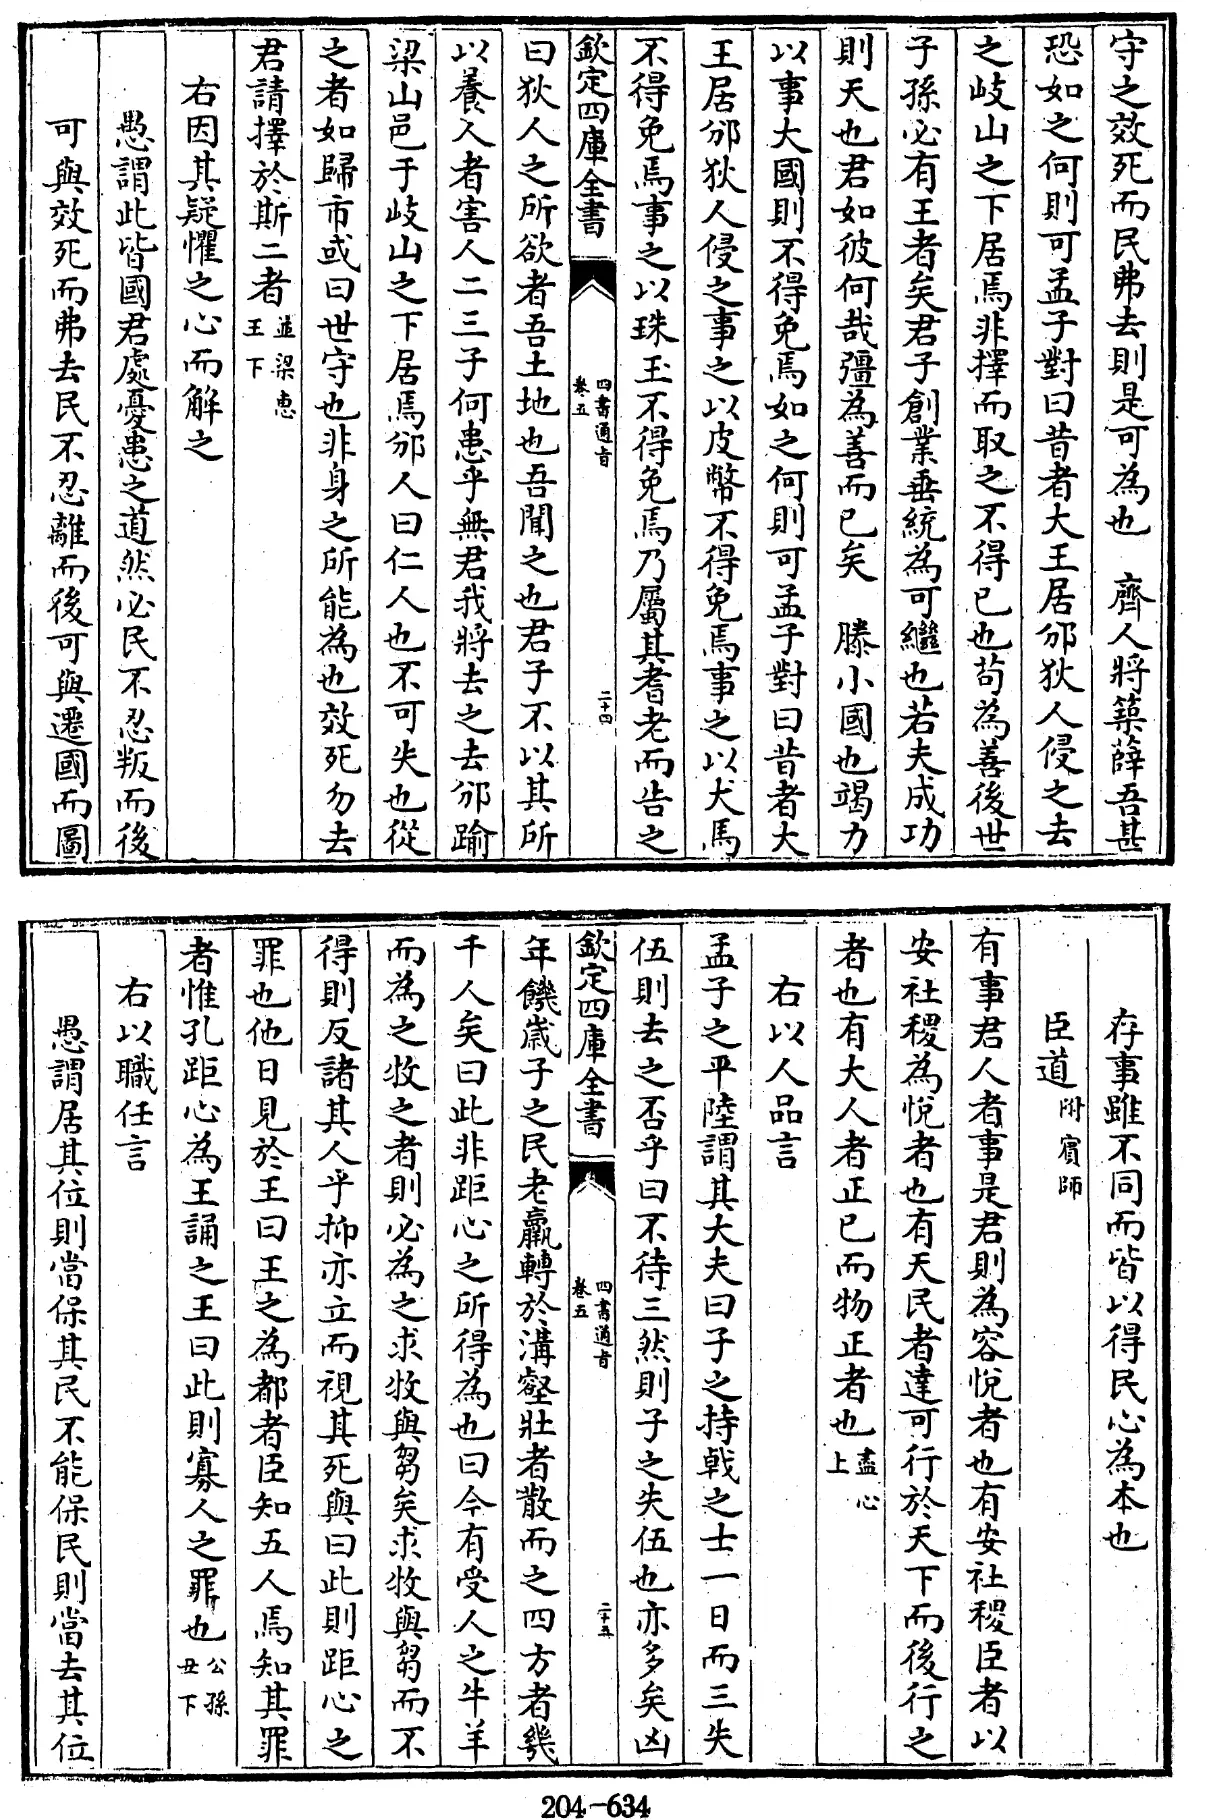 守之效死而民弗去則是可為也　齊人將築薛吾甚
恐如之何則可孟子對曰昔者大王居邠狄人侵之去
之岐山之下居焉非擇而取之不得已也茍為善後世
子孫必有王者矣君子創業垂統為可繼也若夫成功
則天也君如彼何哉彊為善而已矣　滕小國也竭力
以事大國則不得免焉如之何則可孟子對曰昔者大
王居邠狄人侵之事之以皮幣不得免焉事之以犬馬
不得免焉事之以珠玉不得免焉乃屬其耆老而告之
欽定四庫全書
四書通旨
卷五
二十四
曰狄人之所欲者吾土地也吾聞之也君子不以其所
以養人者害人二三子何患乎無君我將去之去邠踰
梁山邑于岐山之下居焉邠人曰仁人也不可失也從
之者如歸市或曰世守也非身之所能為也效死勿去
君請擇於斯二者並梁惠王下
右因其疑懼之心而解之
愚謂此皆國君處憂患之道然必民不忍叛而後
可與效死而弗去民不忍離而後可與遷國而圖
存事雖不同而皆以得民心為本也
臣道附賓師
有事君人者事是君則為容悅者也有安社稷臣者以
安社稷為悅者也有天民者達可行於天下而後行之
者也有大人者正己而物正者也盡心上
右以人品言
孟子之平陸謂其大夫曰子之持戟之士一日而三失
伍則去之否乎曰不待三然則子之失伍也亦多矣凶
欽定四庫全書
四書通旨
卷五
二十五
年饑歲子之民老羸轉於溝壑壯者散而之四方者幾
千人矣曰此非距心之所得為也曰今有受人之牛羊
而為之牧之者則必為之求牧與芻矣求牧與芻而不
得則反諸其人乎抑亦立而視其死與曰此則距心之
罪也他日見於王曰王之為都者臣知五人焉知其罪
者惟孔距心為王誦之王曰此則寡人之罪也公孫丑下
右以職任言
愚謂居其位則當保其民不能保民則當去其位
204-634